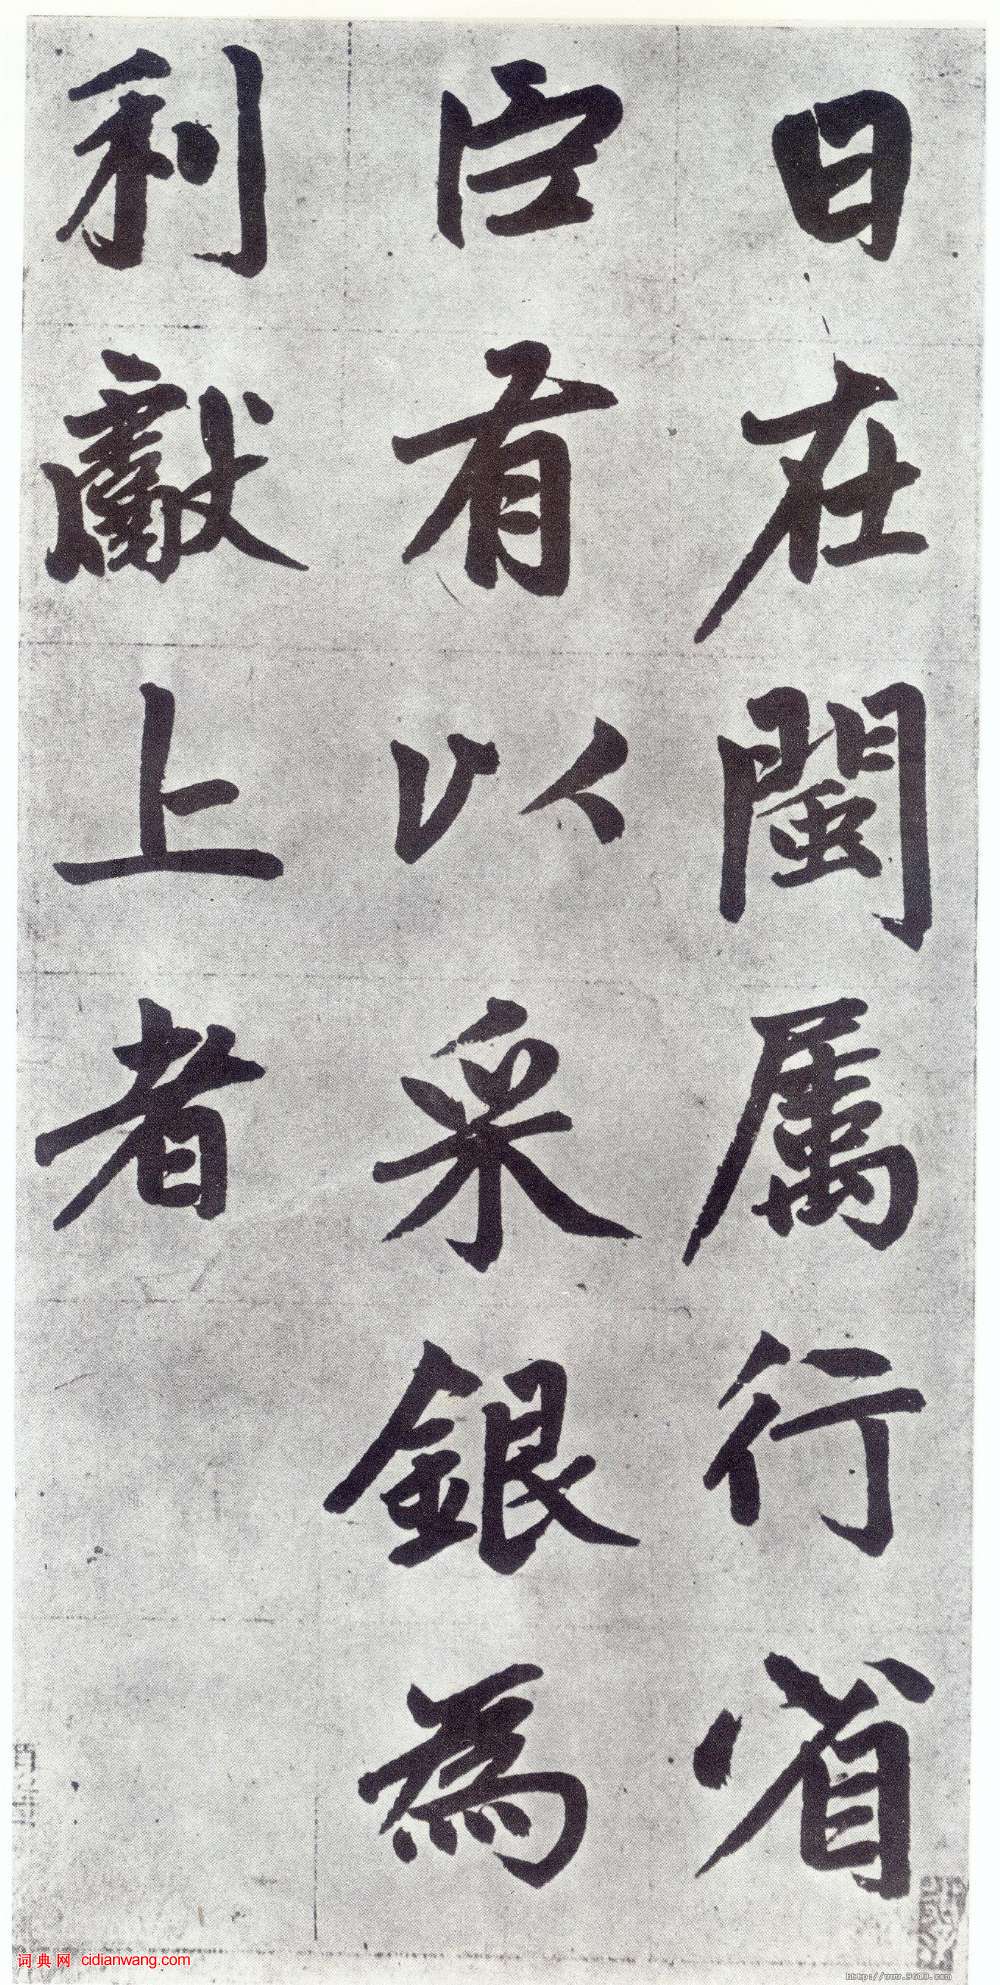 日在閩屬行省
臣有以采銀為
利獻上者
词典网 cidianwang.com
http://www.9610.com